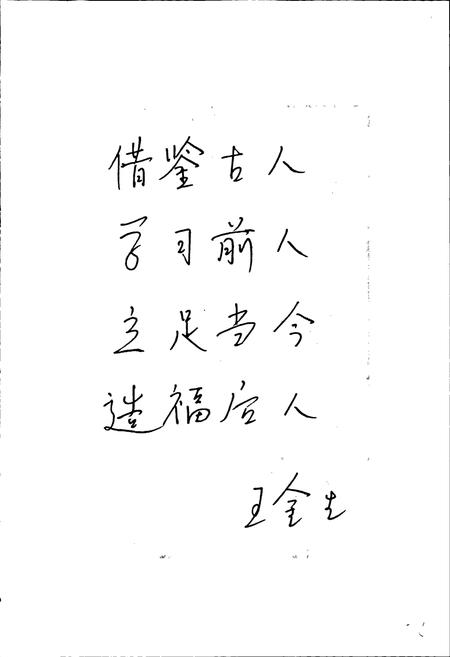 借鉴古人
学习前人
立足当今
造福后人
王金生